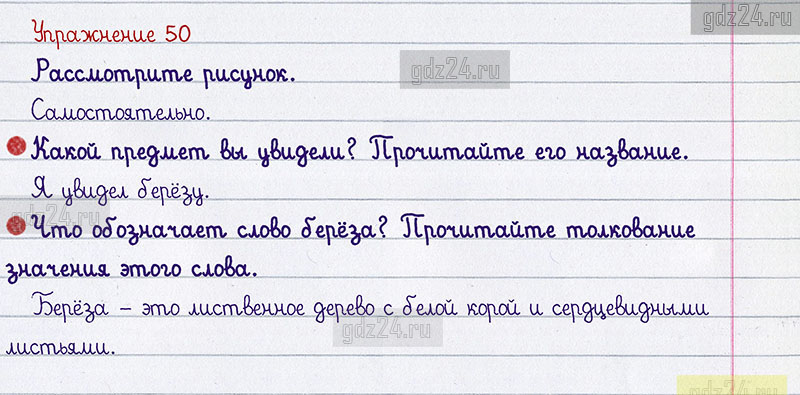 gdz24.ru
Упражнение 50
Рассмотрите рисунок.
gdz24.ru
Самостоятельно.
Какой предмет вы увидели? Прочитайте его название.
Я увидел берёзу.
gdz24.ru
Что обозначает слово берёза? Прочитайте толкование
значения этого слова.
Берёза – это лиственное дерево с белой корой и сердцевидными
gdz24.ru
листьями.
gdz24.ru